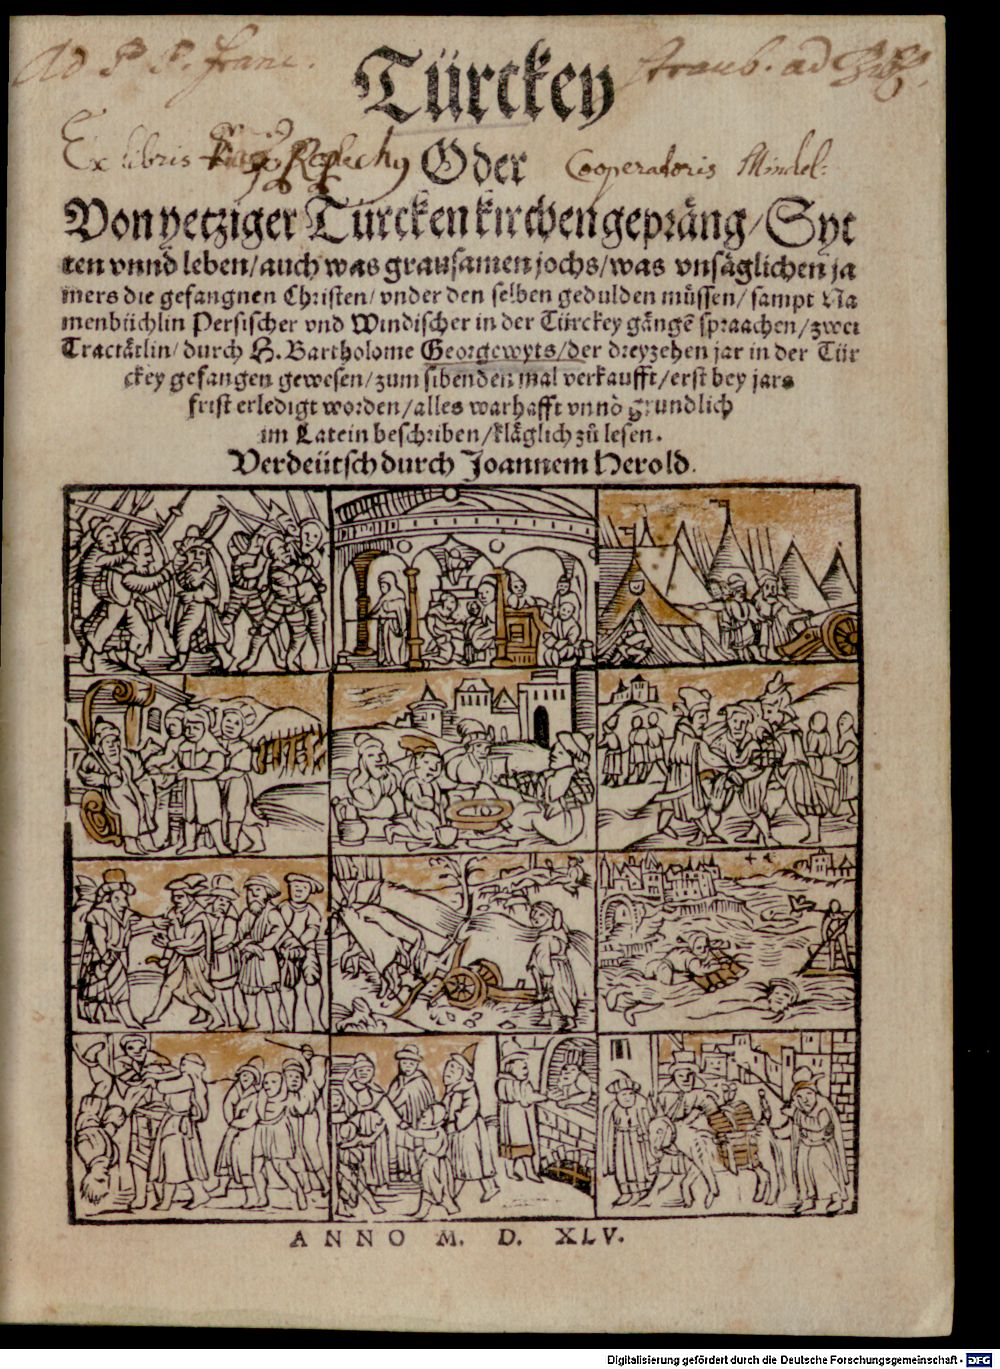 Ad P P. Franc. straub. ad
Türckey
Ex libris Oder Cooperatoris Mindel:
Von yetziger Türcken kirchen gepräng/ Syt
ten vnnd leben/ auch was grausamen jochs/ was vnsäglichen ja
mers die gefangnen Christen/ vnder den selben gedulden müssen/ sampt Na
menbüchlin Persischer vnd Windischer in der Türckey gängē spraachen/ zwei
Tractätlin/ durch H. Bartholome Georgewyts/ der dreyzehen jar in der Tür
ckey gefangen gewesen/ zum sibenden mal verkaufft/ erst bey jars
frist erledigt worden/ alles warhafft vnnd grundlich
im Latein beschriben/ kläglich zů lesen.
Verdeütsch durch Joannem Herold.
ANNO M. D. XLV.
Digitalisierung gefördert durch die Deutsche Forschungsgemeinschaft - DFG